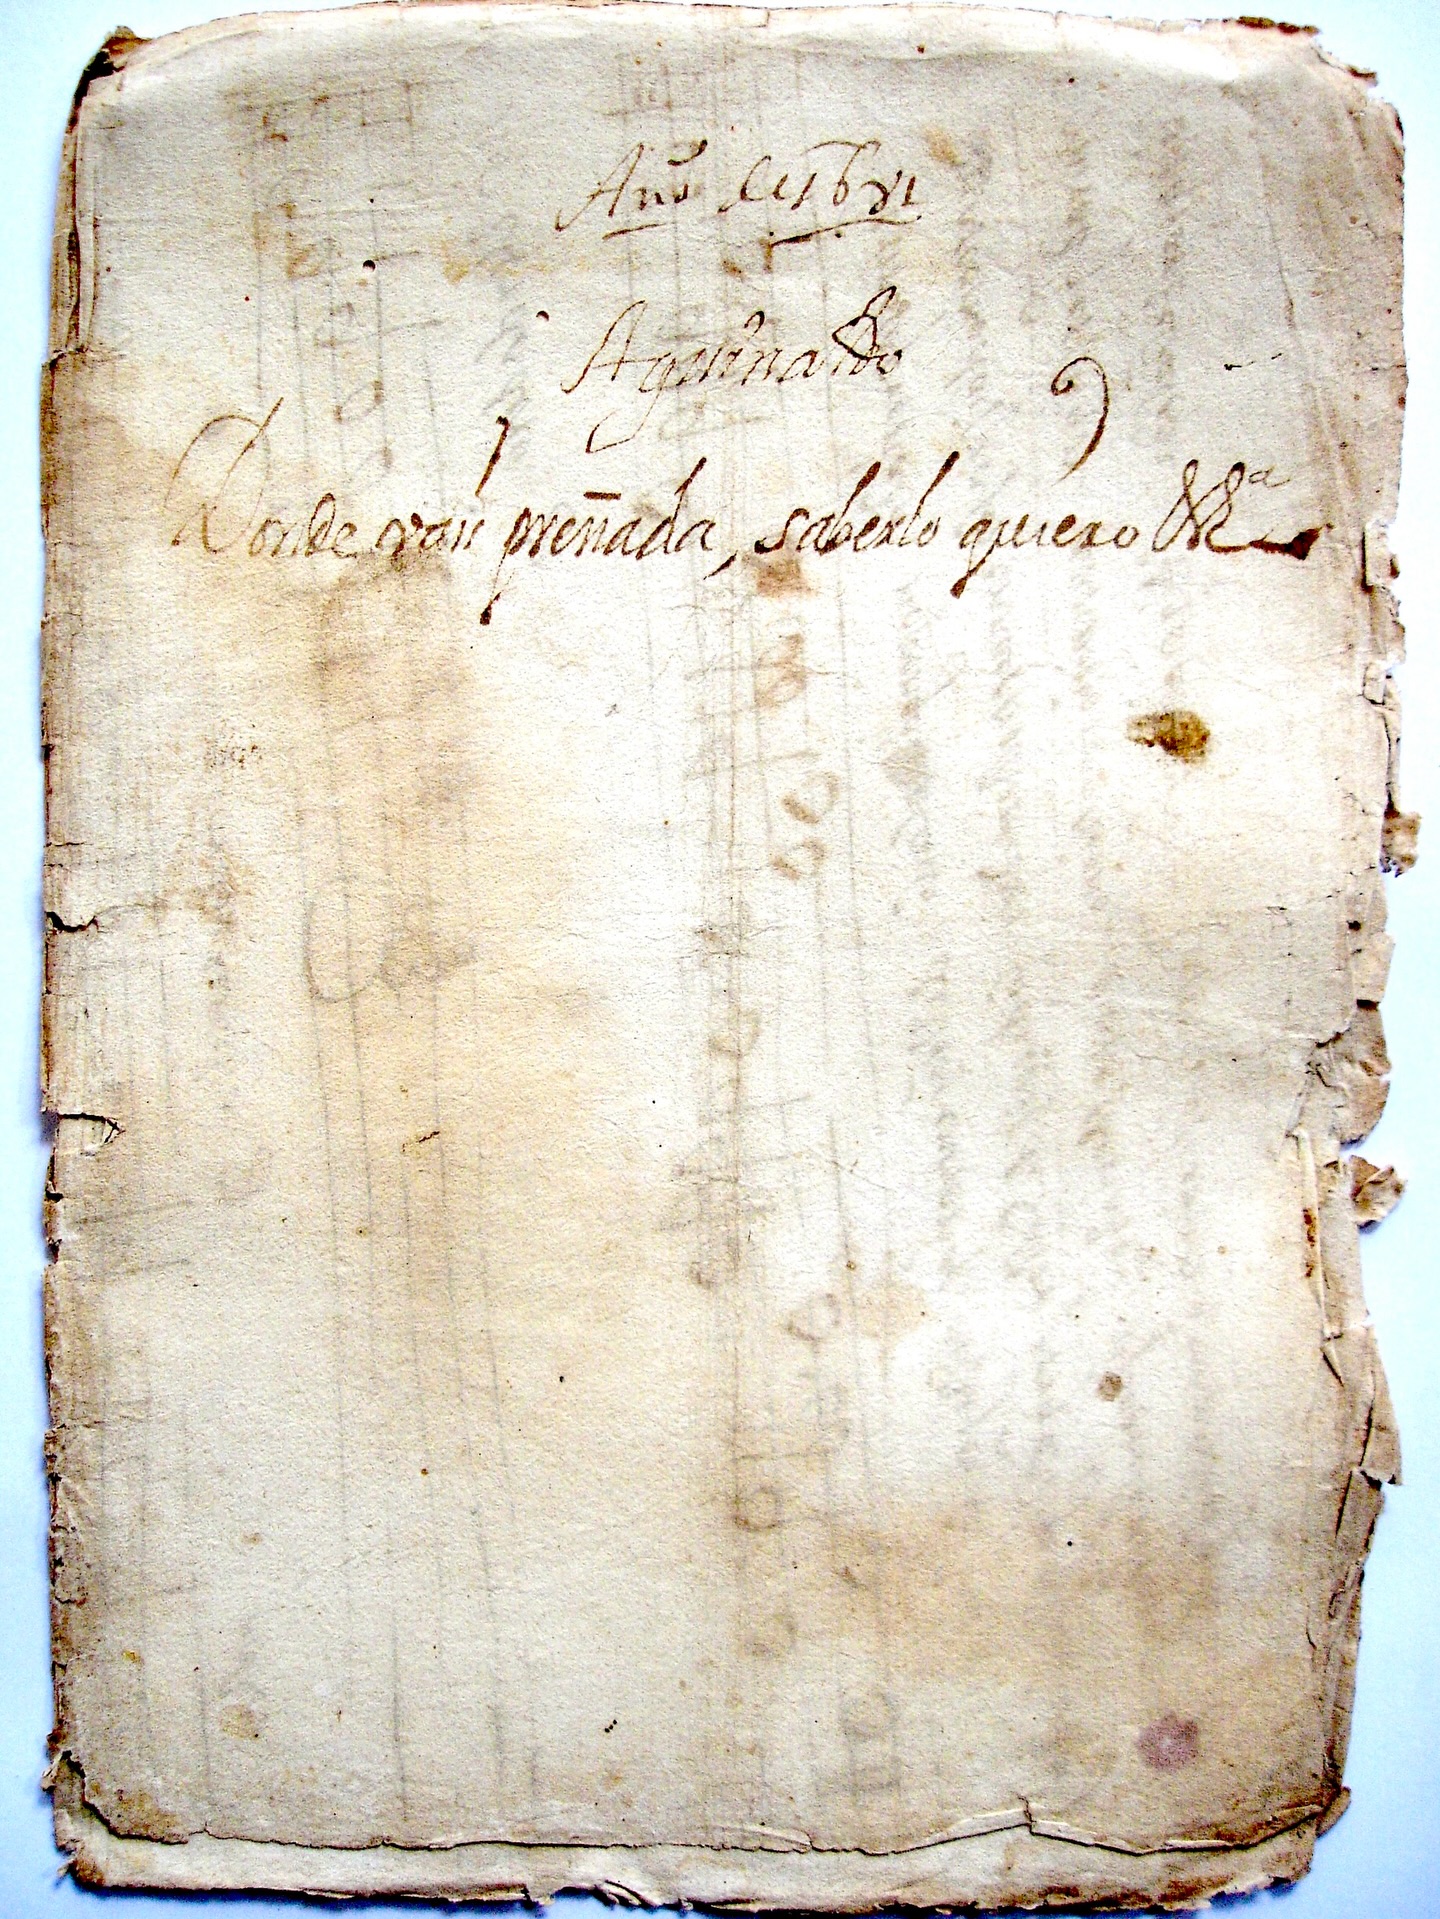 Año de
Aguinaldo
Donde vais preñada, saberlo quiero &ª